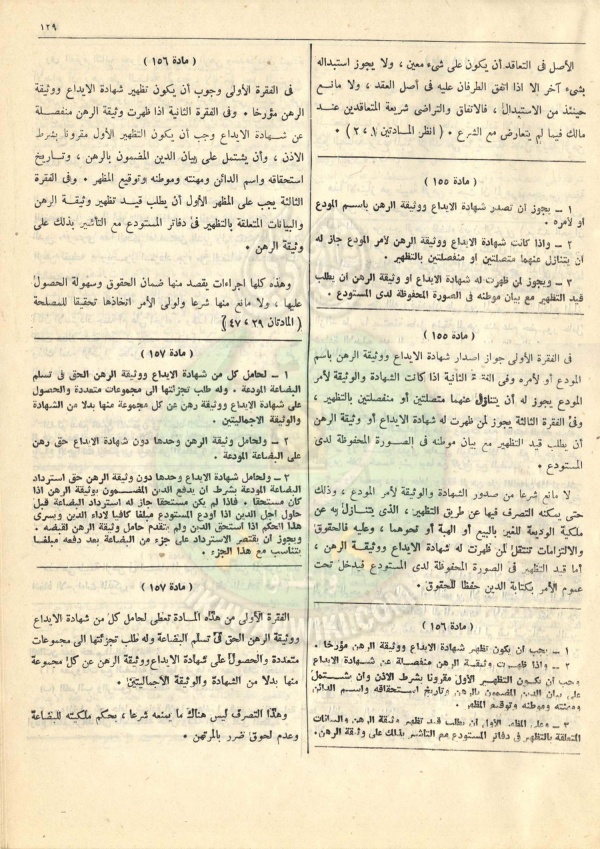 ١٢٩
الأصل فى التعاقد أن يكون على شىء معين ، ولا يجوز استبداله
بشىء آخر الا اذا اتفق الطرفان عليه فى أصل العقد ، ولا مانع
حينئذ من الاستبدال ، فالاتفاق والتراضى شريعة المتعاقدين عند
مالك فيما لم يتعارض مع الشرع ٠ ( انظر المادتين ١ ، ٢ ) ٠
( مادة ١٥٥ )
١ ـ يجوز أن تصدر شهادة الايداع ووثيقة الرهن باسم المودع
او لأمره ٠
٢ ـ واذا كانت شهادة الايداع ووثيقة الرهن لأمر المودع جاز له
ان يتنازل عنهما متصلتين او منفصلتين بالتظهير ٠
٣ ـ ويجوز لمن ظهرت له شهادة الايداع او وثيقة الرهن ان يطلب
قيد التظهير مع بيان موطنه فى الصورة المحفوظة لدى المستودع ٠
( مادة ١٥٥ )
فى الفقرة الأولى جواز اصدار شهادة الايداع ووثيقة الرهن باسم
المودع أو لأمره وفى الفقرة الثانية اذا كانت الشهادة والوثيقة لأمر
المودع يجوز له أن يتنازل عنهما متصلتين أو منفصلتين بالتظهير ،
وفى الفقرة الثالثة يجوز لمن ظهرت له شهادة الايداع أو وثيقة الرهن
أن يطلب قيد التظهير مع بيان موطنه فى الصورة المحفوظة لدى
المستودع ٠
لا مانع شرعا من صدور الشهادة والوثيقة لأمر المودع ، وذلك
حتى يمكنه التصرف فيها عن طريق التظهير ، الذى يتنازل به عن
ملكية الوديعة للغير بالبيع أو الهبة أو نحوهما ، وعليه فالحقوق
والالتزامات تنتقل لمن ظهرت له شهادة الايداع ووثيقة الرهن ،
أما قيد التظهير فى الصورة المحفوظة لدى المستودع فيدخل تحت
عموم الأمر بكتابة الدين حفظا للحقوق ٠
( مادة ١٥٦ )
١ ـ يجب ان يكون تظهير شهادة الايداع ووثيقة الرهن مؤرخا ٠
٢ ـ واذا ظهرت وثيقة الرهن منفصلة عن شهادة الايداع
وجب ان يكون التظهير الأول مقرونا بشرط الاذن وان يشتمل
على بيان الدين المضمون بالرهن وتاريخ استحقاقه واسم الدائن
ومهنته وموطنه وتوقيع المظهر ٠
٣ ـ وعلى المظهر الأول ان يطلب قيد تظهير وثيقة الرهن والبيانات
المتعلقة بالتظهير فى دفاتر المستودع مع التأشير بذلك على وثيقة الرهن ٠
( مادة ١٥٦ )
فى الفقرة الأولى وجوب أن يكون تظهير شهادة الايداع ووثيقة
الرهن مؤرخا ٠ وفى الفقرة الثانية اذا ظهرت وثيقة الرهن منفصلة
عن شهادة الايداع وجب أن يكون التظهير الأول مقرونا بشرط
الاذن ، وأن يشتمل على بيان الدين المضمون بالرهن ، وتاريخ
استحقاقه واسم الدائن ومهنته وموطنه وتوقيع المظهر ٠ وفى الفقرة
الثالثة يجب على المظهر الأول أن يطلب قيد تظهير وثيقة الرهن
والبيانات المتعلقة بالتظهير فى دفاتر المستودع مع التأشير بذلك على
وثيقة الرهن ٠
وهذه كلها اجراءات يقصد منها ضمان الحقوق وسهولة الحصول
عليها ، ولا مانع منها شرعا ولولى الأمر اتخاذها تحقيقا للمصلحة
( المادتان ٢٩ ، ٤٧ )
( مادة ١٥٧ )
١ ـ لحامل كل من شهادة الايداع ووثيقة الرهن الحق فى تسلم
البضاعة المودعة ٠ وله طلب تجزئتها الى مجموعات متعددة والحصول
على شهادة الايداع ووثيقة رهن عن كل مجموعة منها بدلا من الشهادة
والوثيقة الاجماليتين ٠
٢ ـ ولحامل وثيقة الرهن وحدها دون شهادة الايداع حق رهن
على البضاعة المودعة ٠
٣ ـ ولحامل شهادة الايداع وحدها دون وثيقة الرهن حق استرداد
البضاعة المودعة بشرط ان يدفع الدين المضمون بوثيقة الرهن اذا
كان مستحقا ٠ فاذا لم يكن مستحقا جاز له استرداد البضاعة قبل
حلول اجل الدين اذا اودع المستودع مبلغا كافيا لاداء الدين ويسرى
هذا الحكم اذا استحق الدين ولم يتقدم حامل وثيقة الرهن لقبضه ٠
ويجوز ان يقتصر الاسترداد على جزء من البضاعة بعد دفعه مبلغا
يتناسب مع هذا الجزء ٠
( مادة ١٥٧ )
الفقرة الأولى من هذه المادة تعطى لحامل كل من شهادة الايداع
ووثيقة الرهن الحق فى تسلم البضاعة وله طلب تجزئتها الى مجموعات
متعددة والحصول على شهادة الايداع ووثيقة الرهن عن كل مجموعة
منها بدلا من الشهادة والوثيقة الأجماليتين ٠
وهذا التصرف ليس هناك ما يمنعه شرعا ، بحكم ملكيته للبضاعة
وعدم لحوق ضرر بالمرتهن ٠